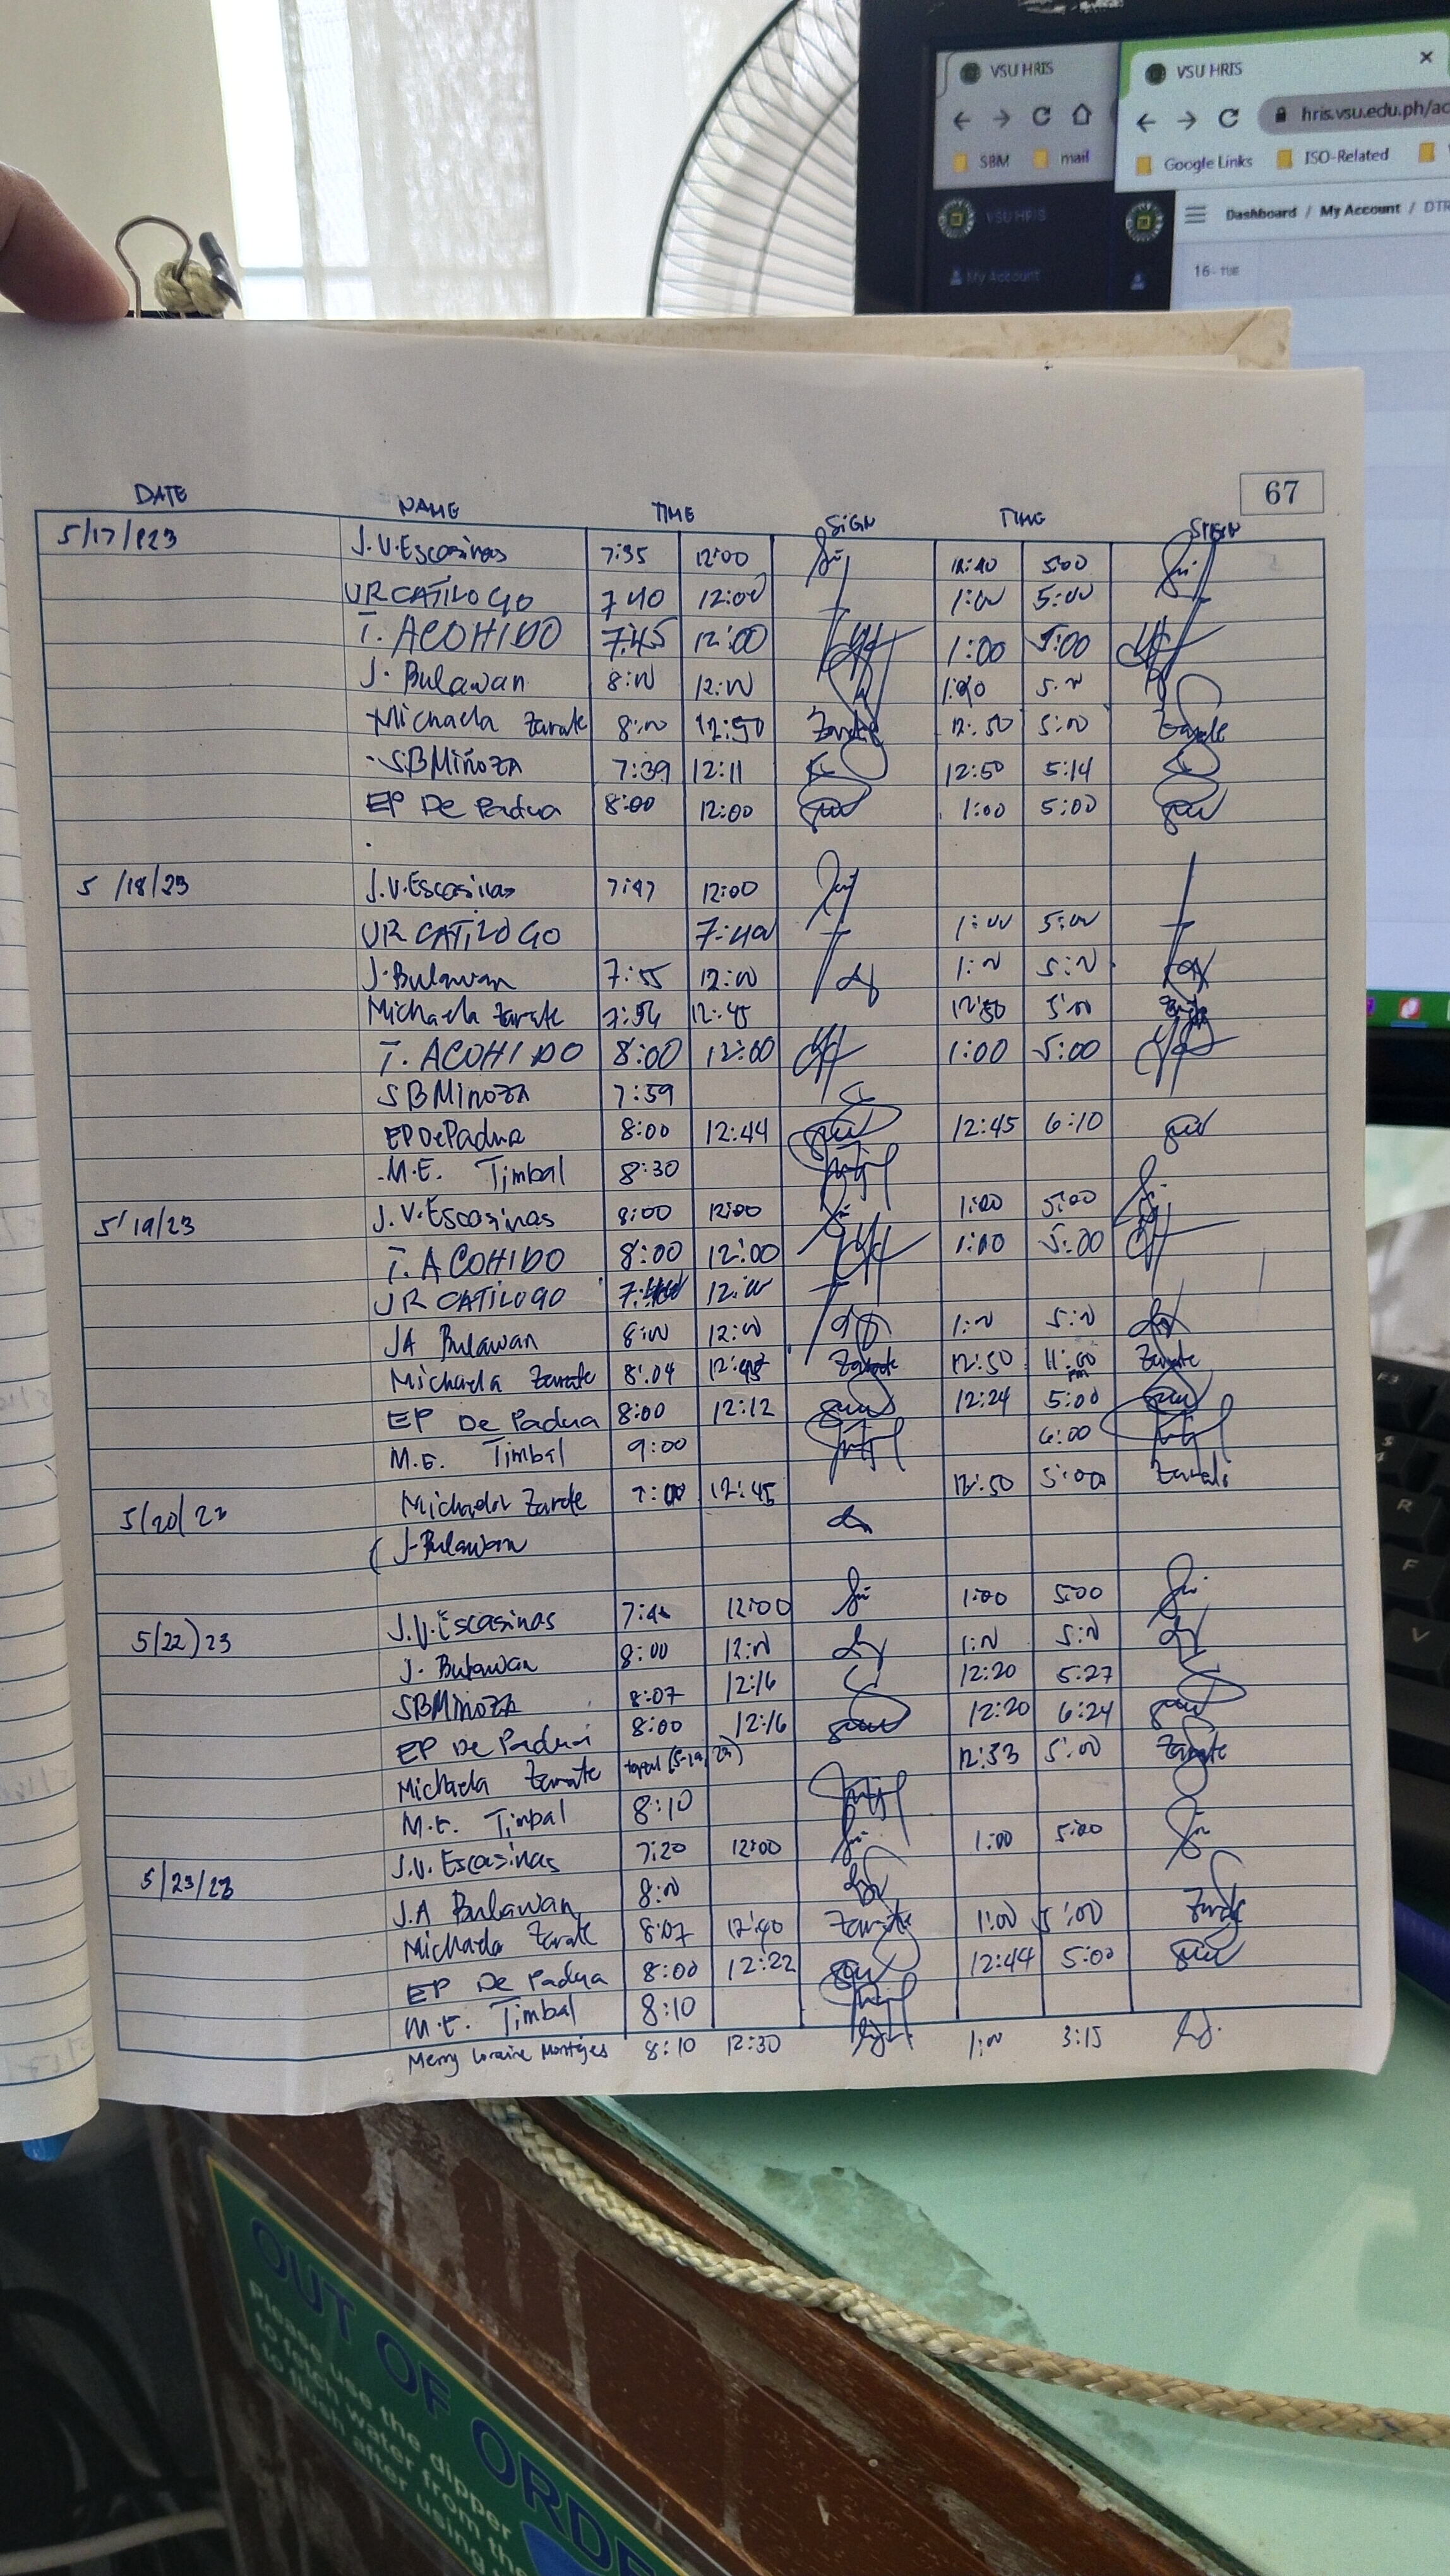 VSU HRIS
VSU HRIS
hris.vsu.edu.ph/ac
SBM mail
Google Links ISO-Related
VSU HRIS
Dashboard / My Account / DTR
My Account
16- TUE
67
DATE NAME TIME SIGN TIME SIGN
5/17/023 J.V.Escasinas 7:35 12:00 12:40 5:00
UR CATILOGO 7:40 12:00 1:00 5:00
T. ACOHIDO 7:45 12:00 1:00 5:00
J. Bulawan 8:00 12:00 1:00 5:00
Michaela Zarate 8:00 12:50 Zarate 12:50 5:00 Zarate
SBMiñoza 7:39 12:11 12:50 5:14
EP De Padua 8:00 12:00 1:00 5:00
5/18/23 J.V.Escasinas 7:47 12:00
UR CATILOGO 7:40 1:00 5:00
J. Bulawan 7:55 12:00 1:00 5:00
Michaela Zarate 7:56 12:45 12:50 5:00
T. ACOHIDO 8:00 12:00 1:00 5:00
SBMinoza 7:59
EP De Padua 8:00 12:44 12:45 6:10
M.E. Timbal 8:30
5/19/23 J.V.Escasinas 8:00 12:00 1:00 5:00
T. ACOHIDO 8:00 12:00 1:00 5:00
UR CATILOGO 12:00
JA Bulawan 8:00 12:00 1:00 5:00
Michaela Zarate 8:04 Zarate 12:50 11:00 pm Zarate
EP De Padua 8:00 12:12 12:24 5:00
M.E. Timbal 9:00 6:00
5/20/23 Michaela Zarate 7:00 12:45 12:50 5:00 Zarate
J. Bulawan
5/22/23 J.V.Escasinas 12:00 1:00 5:00
J. Bulawan 8:00 12:00 1:00 5:00
SBMinoza 8:07 12:16 12:20 5:27
EP De Padua 8:00 12:16 12:20 6:24
Michaela Zarate 12:33 5:00 Zarate
M.E. Timbal 8:10
5/23/23 J.V. Escasinas 7:20 12:00 1:00 5:00
J.A Bulawan 8:00
Michaela Zarate 8:07 12:40 Zarate 1:00 5:00 Zarate
EP De Padua 8:00 12:22 12:44 5:00
M.E. Timbal 8:10
Merry Loraine Montejes 8:10 12:30 1:00 3:15
OUT OF ORDE
Please use the dipper
to fetch water from the
to flush after using